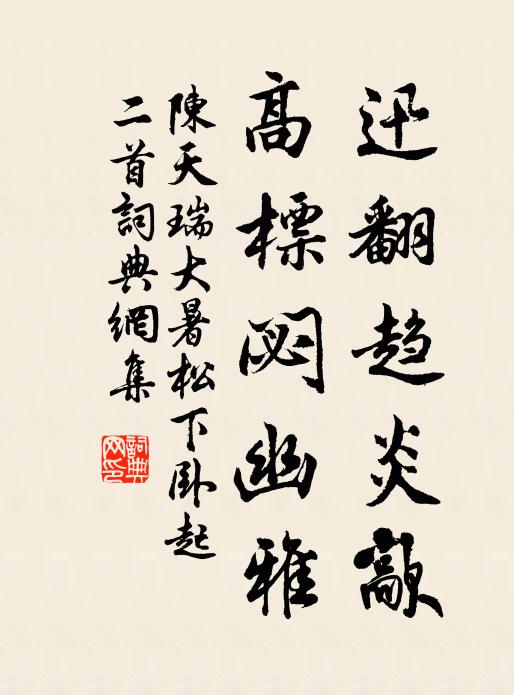 迅翻趋炎敲
高標閟幽雅
陳天瑞大暑松下卧起
二首詞典網集
詞典网印